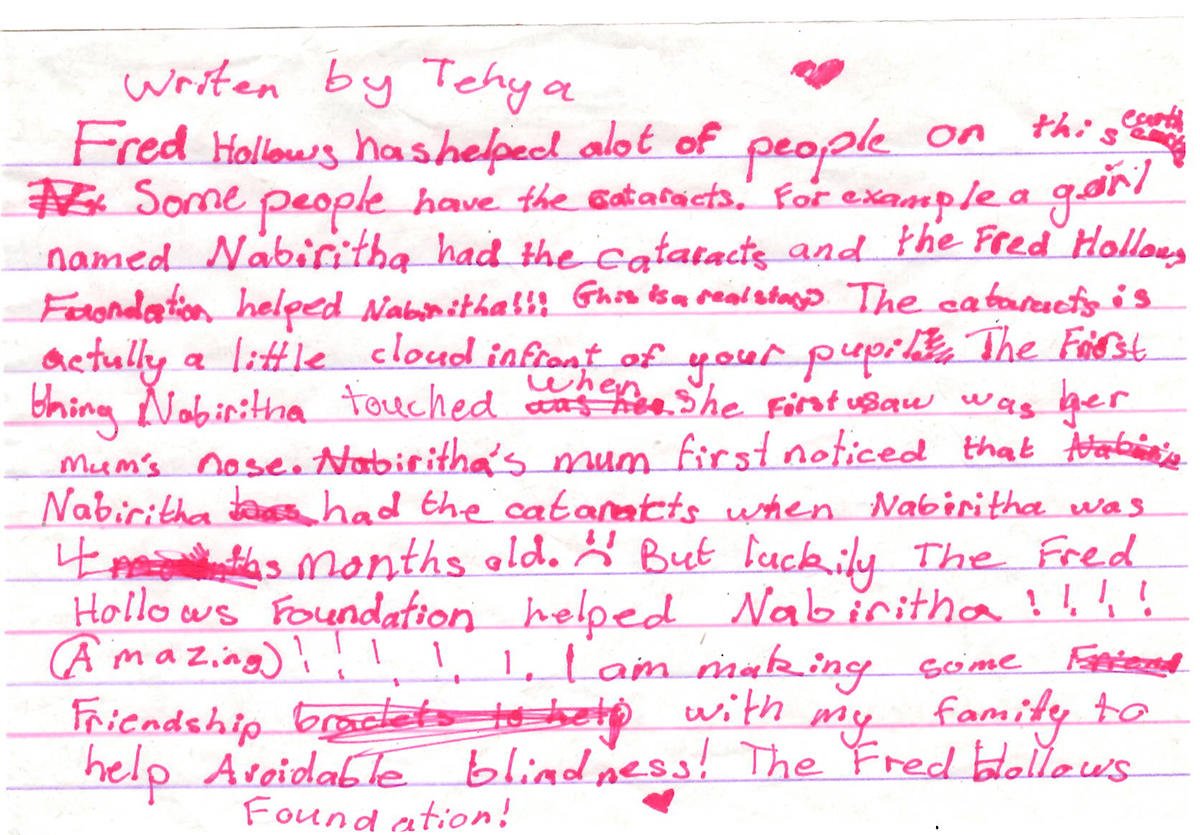 Writen by Tehya
Fred Hollows has helped alot of people on this earth
Some people have the cataracts. For example a girl
named Nabiritha had the cataracts and the Fred Hollows
Foundation helped Nabiritha!!! (This is a real story) The cataracts is
actully a little cloud infront of your pupil. The First
thing Nabiritha touched when she first saw was her
mum's nose. Nabiritha's mum first noticed that
Nabiritha had the cataracts when Nabiritha was
4 months old. But luckily The Fred
Hollows Foundation helped Nabiritha !!!!
(Amazing)!!!!!! I am making some
Friendship braclets to help with my family to
help Avoidable blindness! The Fred Hollows
Foundation!